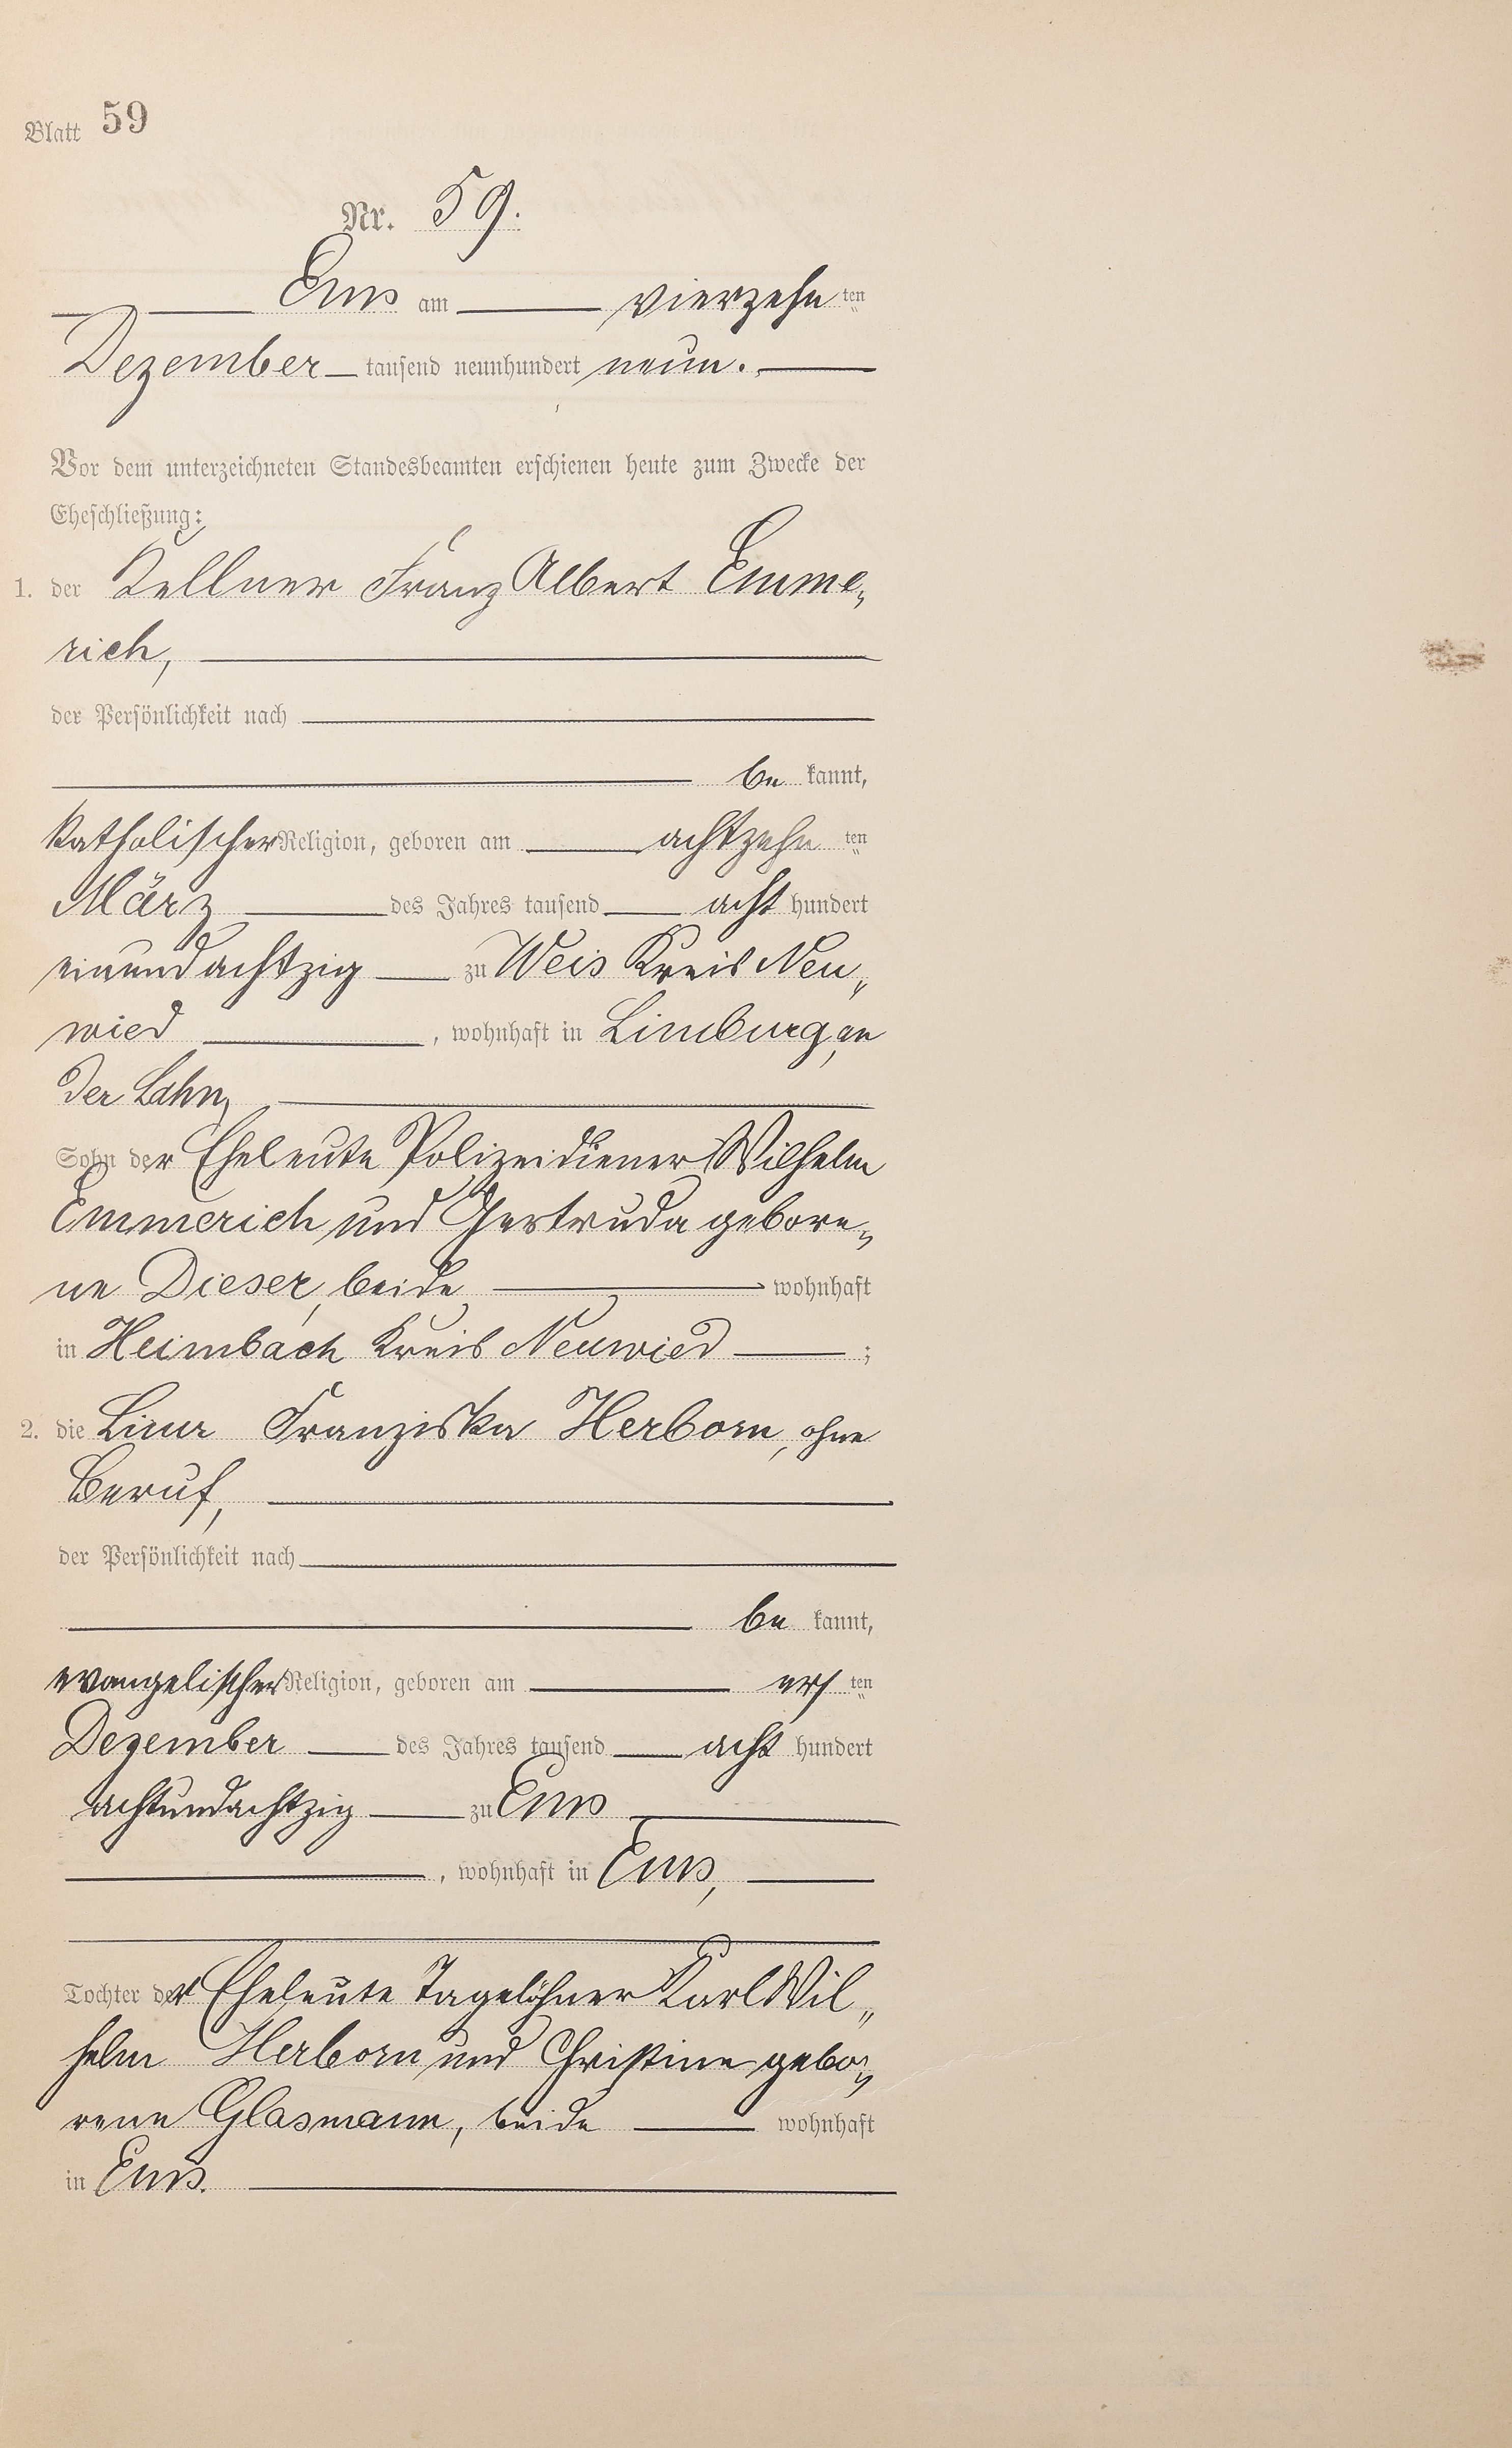 Blatt 59
Nr. 59.
Ems am vierzehn ten
Dezember tausend neunhundert neun.
Vor dem unterzeichneten Standesbeamten erschienen heute zum Zwecke der
Eheschließung:
1. der Kellner Franz Albert Emme„
rich,
der Persönlichkeit nach
be kannt,
katholischer Religion, geboren am achtzehn ten
März des Jahres tausend acht hundert
einundachtzig zu Weis Kreis Neu„
wied, wohnhaft in Limburg an
der Lahn,
Sohn der Eheleute Polizeidiener Wilhelm
Emmerich und Gertruda gebore„
ne Dieser, beide wohnhaft
in Heimbach Kreis Neuwied ;
2. die Lina Franziska Herborn, ohne
Beruf,
der Persönlichkeit nach
be kannt,
evangelischer Religion, geboren am ers ten
Dezember des Jahres tausend acht hundert
achtundachtzig zu Ems
, wohnhaft in Ems,
Tochter der Eheleute Tagelöhner Karl Wil„
helm Herborn und Christine gebo„
rene Glasmann, beide wohnhaft
in Ems.